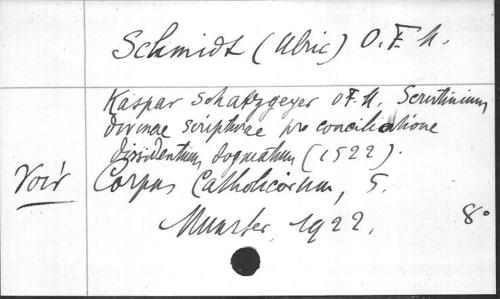 Schmidt (Ulric) O.F.M.
Kaspar Schatzgeyer O.F.M. Scrutinium
divinae scripturae pro conciliatione
dissidentium dogmatum (1522).
Voir Corpus Catholicorum, 5.
Munster, 1922. 8°